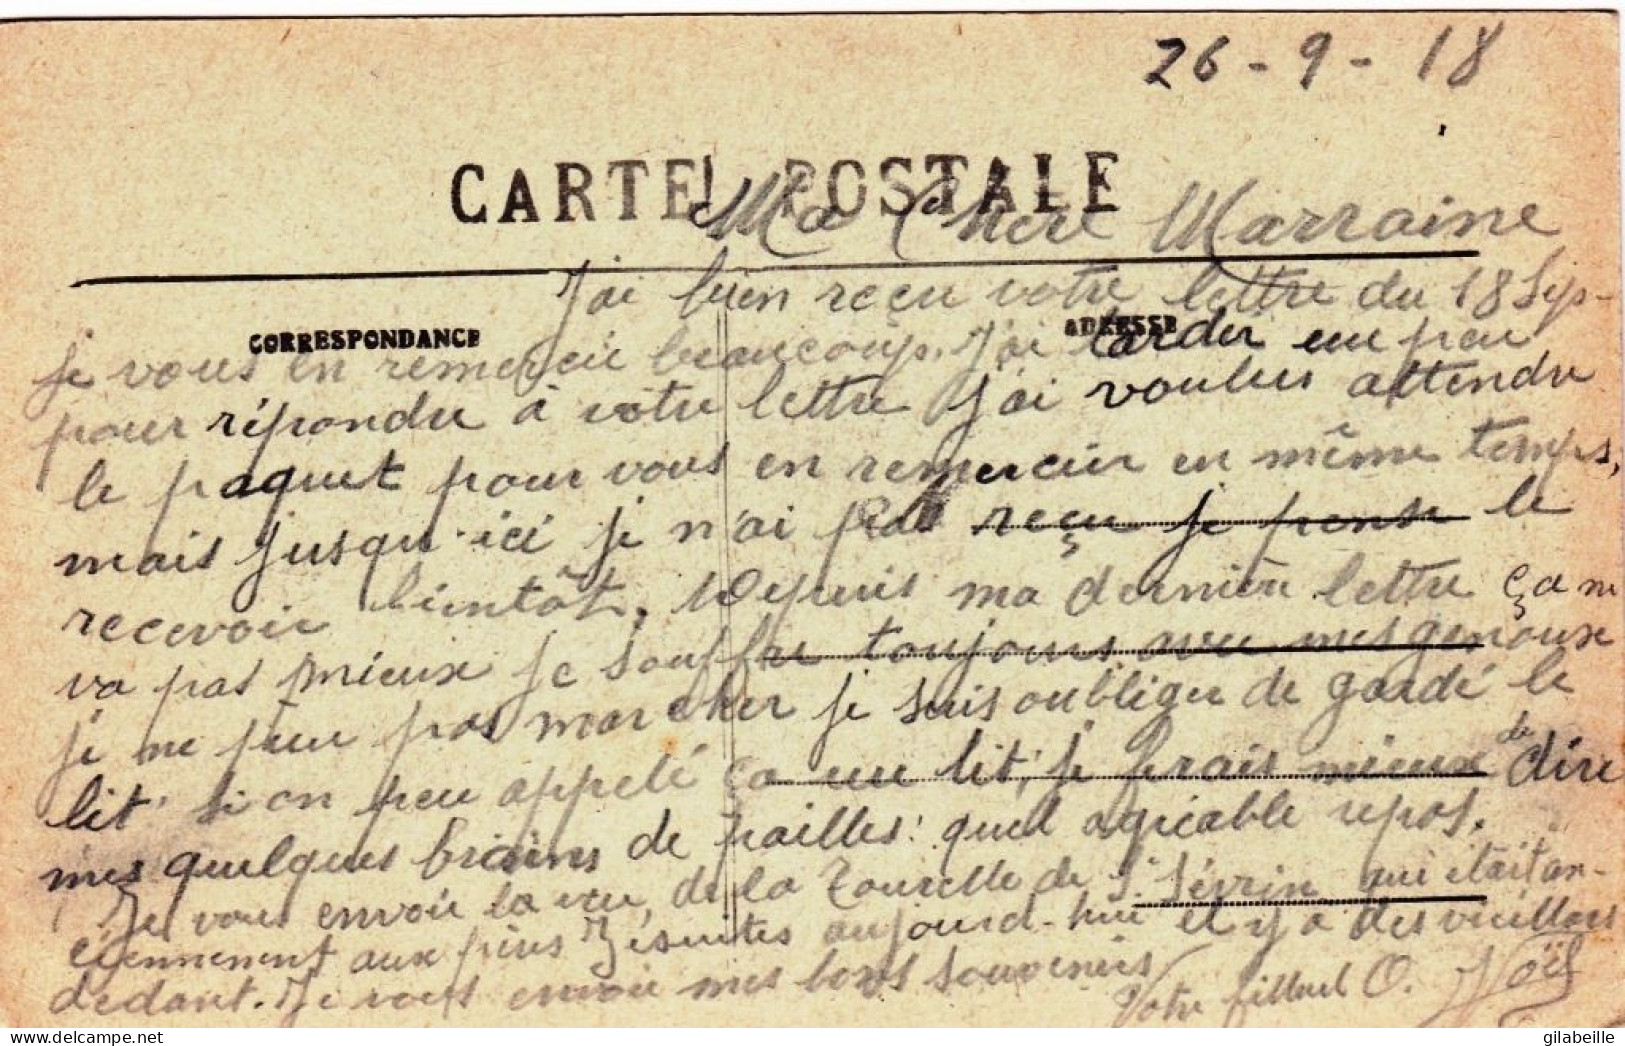 26-9-18
CARTE POSTALE
Ma Chere Marraine
J'ai bien recu votre lettre du 18 Sep-
CORRESPONDANCE
ADRESSE
je vous en remercie beaucoup. J'ai tarder un peu
pour répondre à votre lettre j'ai voulus attendre
le paquet pour vous en remercier en même temps,
mais jusqu-ici je n'ai pas reçu je pense le
recevoir bientôt. Depuis ma dernière lettre ça ne
va pas mieux je souffre toujours avec mes genoux
je ne peu pas marcher je suis oubliger de gardé le
lit si on peu appelé ça un lit, je ferais mieux de dire
mes quelques brains de pailles: quel agréable repos.
Je vous envoie la vue, de la Tourelle de St Sévrin qui était an-
ciennement aux pères Jésuites aujourd-hui il y à des vieillars
dedant. Je vous envoie mes bons souvenirs
Votre filleul O. Noël
gilabeille
delcampe.net